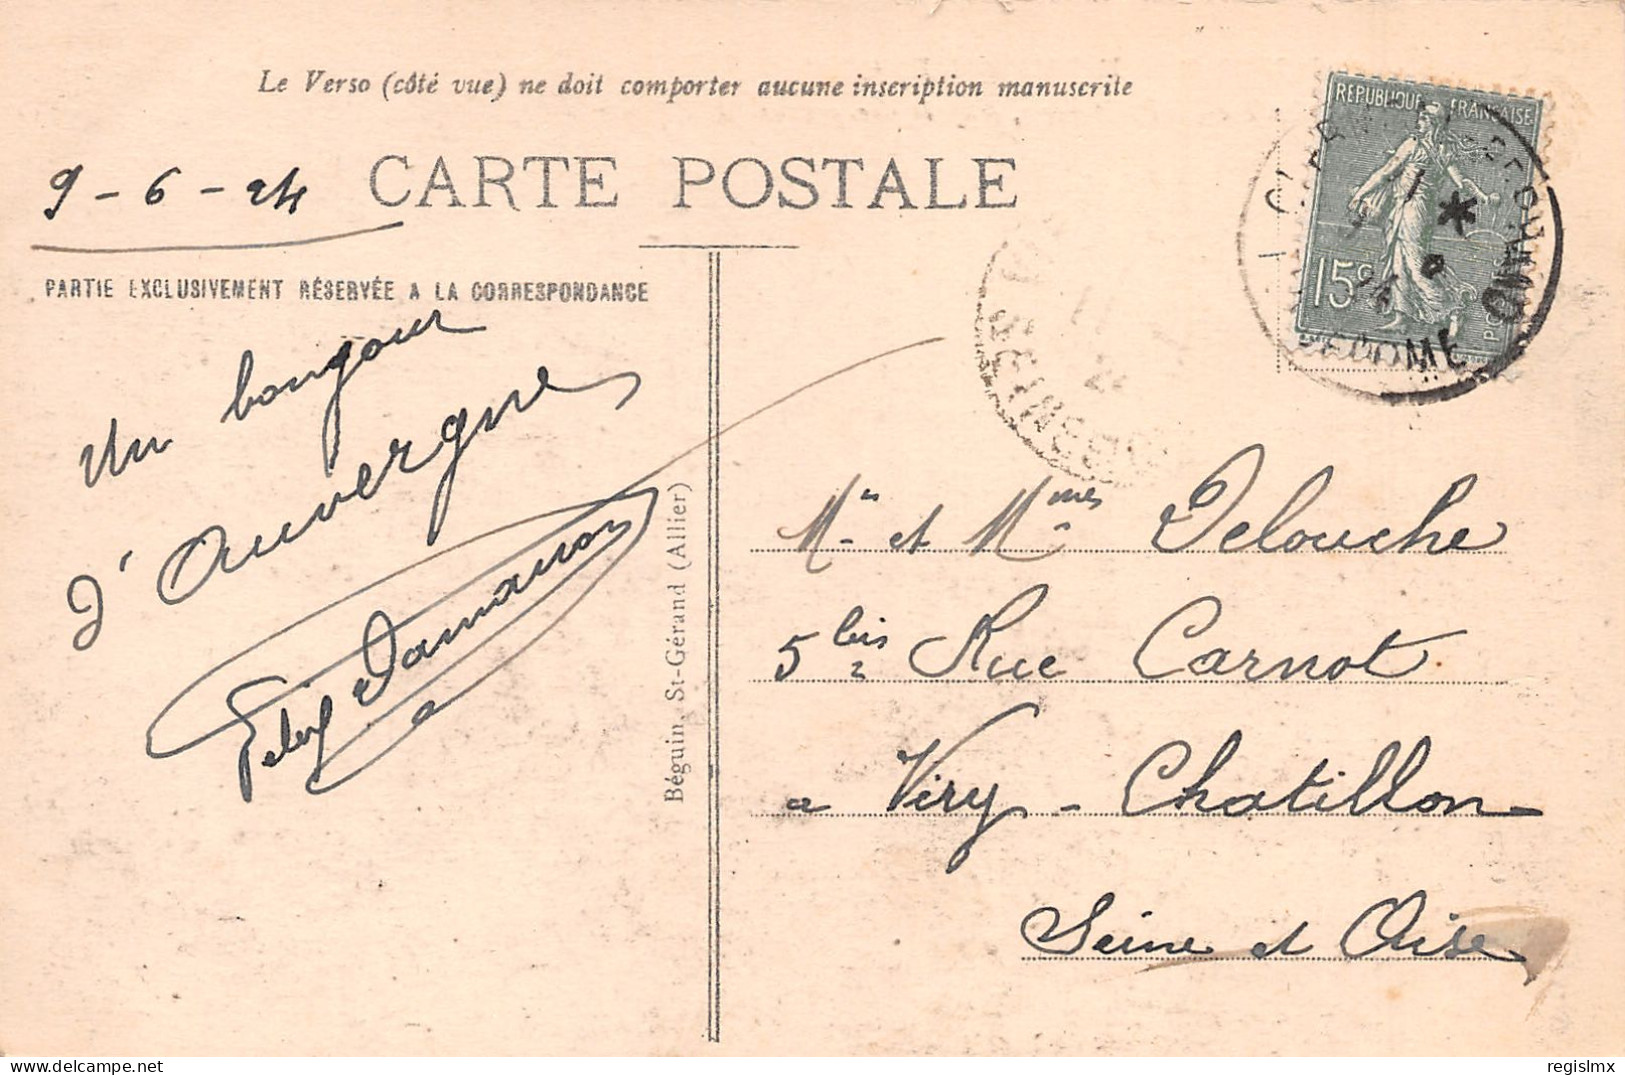 Le Verso (côté vue) ne doit comporter aucune inscription manuscrite
REPUBLIQUE FRANÇAISE
15c
DOME
9-6-24
CARTE POSTALE
PARTIE EXCLUSIVEMENT RÉSERVÉE A LA CORRESPONDANCE
Un bonjour
d'Auvergne
Felix
Béguin, St-Gérand (Allier)
Mr et Mmes Delouche
5 bis Rue Carnot
a Viry-Chatillon
Seine et Oise
regislmx